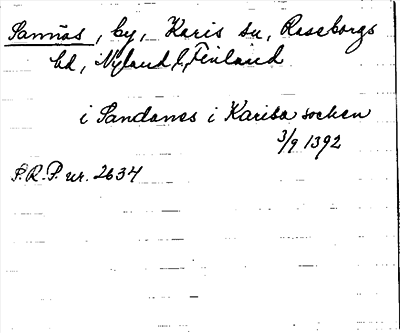 Sannäs, by, Karis sn, Raseborgs
hd, Nyland l, Finland
i Sandanes i Karisa socken
3/9 1392
S.R.P. nr. 2634